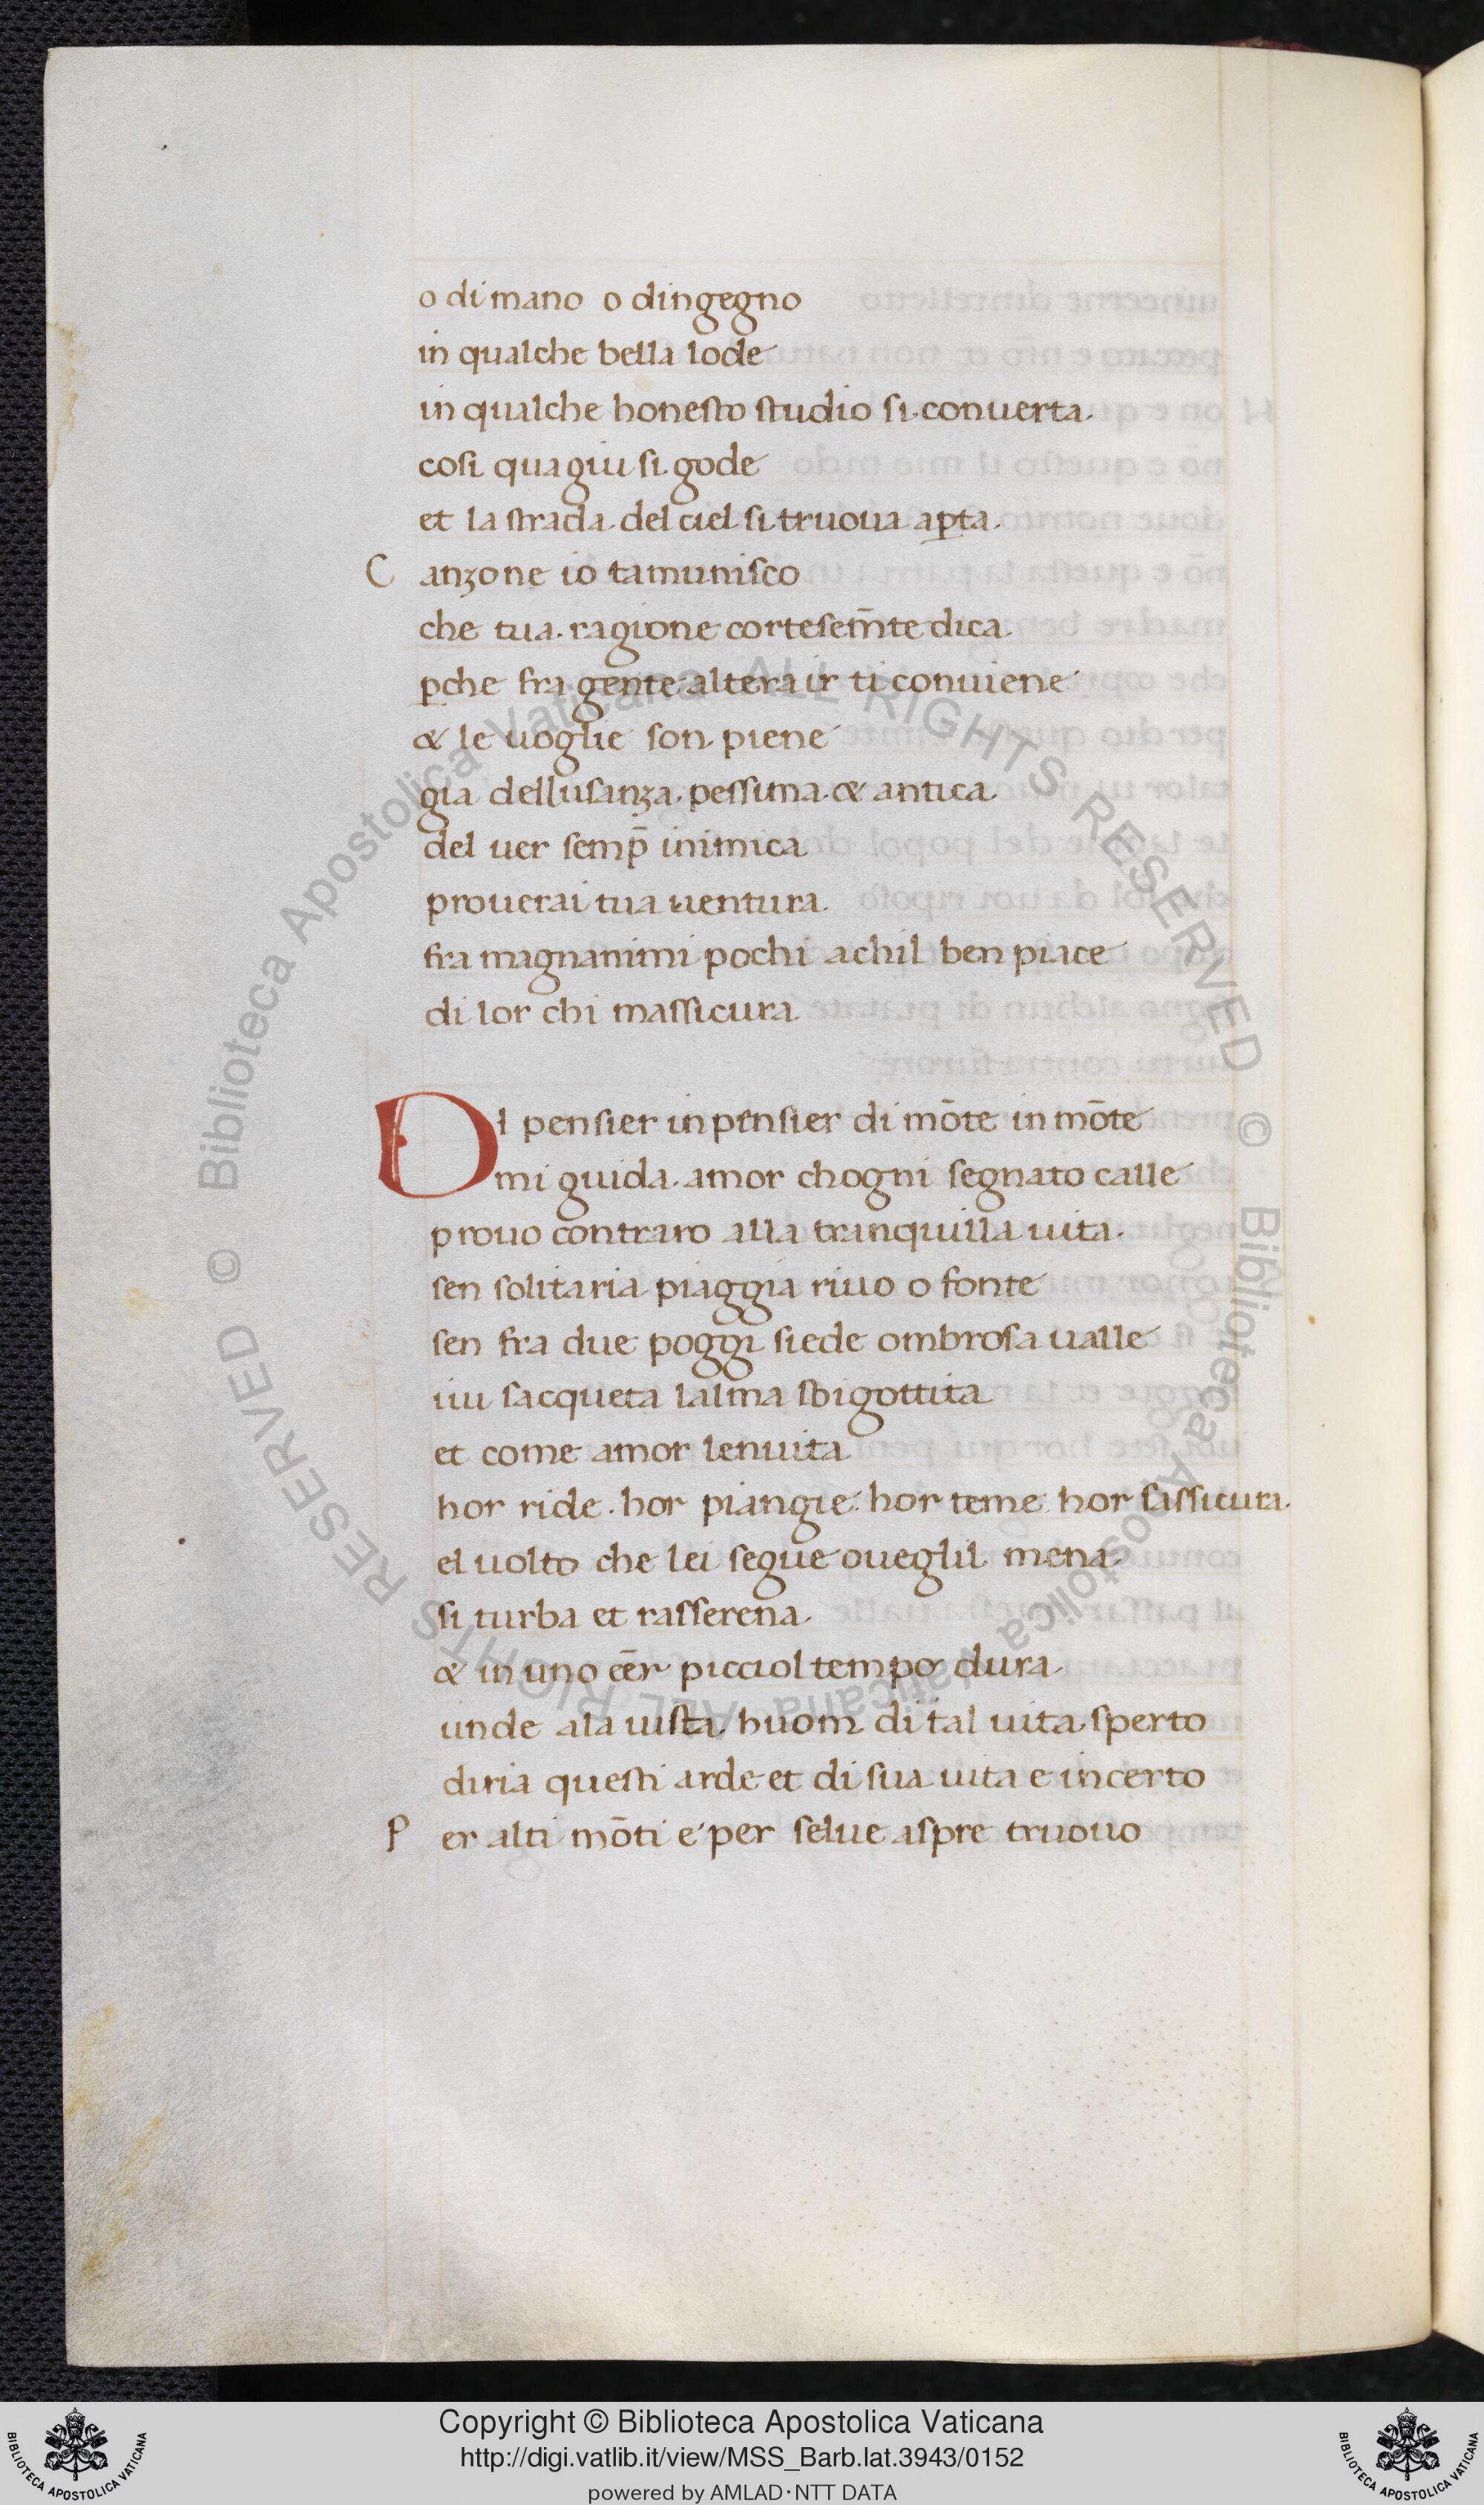 o di mano o dingegno
in qualche bella lode
in qualche honesto studio si conuerta.
cosi qua giu si gode
et la strada del ciel si truoua ap̱ta.
C anzone io tamunisco
che tua ragione cortesem̄te dica
p̱che fra gente altera ir ti conuiene
& le uoglie son piene
gia dellusanza pessima & antica
del uer semp̄ inimica
prouerai tua uentura.
fra magnanimi pochi achil ben piace
di lor chi massicura
DI pensier in pensier di mōte in mōte
mi guida amor chogni segnato calle
prouo contraro alla tranquilla uita.
sen solitaria piaggia riuo o fonte
sen fra due poggi siede ombrosa ualle
iui sacqueta lalma sbigottita
et come amor lenuita
hor ride. hor piangie hor teme hor sassicura.
el uolto che lei segue oueglil mena
si turba et rasserena.
& in uno eēr picciol tempo dura
unde ala uista huom di tal uita sperto
diria questi arde et di sua uita e incerto
P er alti mōti e per selue aspre truouo
Copyright © Biblioteca Apostolica Vaticana
http://digi.vatlib.it/view/MSS_Barb.lat.3943/0152
powered by AMLAD·NTT DATA
BIBLIOTECA APOSTOLICA VATICANA
BIBLIOTECA APOSTOLICA VATICANA
© Biblioteca Apostolica Vaticana ALL RIGHTS RESERVED
© Biblioteca Apostolica Vaticana ALL RIGHTS RESERVED